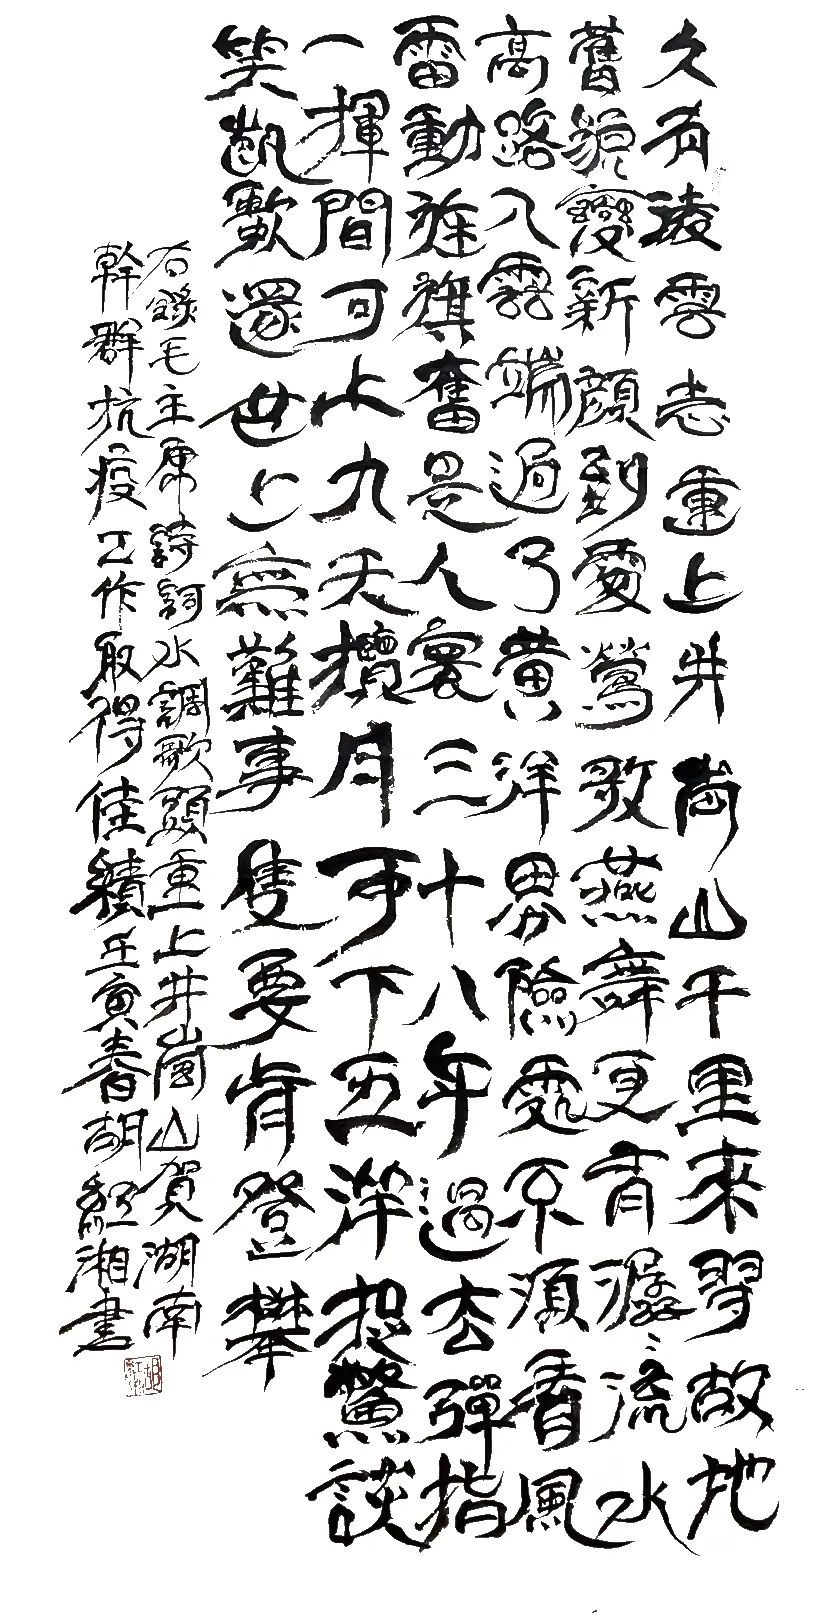 久有淩雲志重上井崗山千里來尋故地
舊貌變新顔到處鶯歌燕舞更有潺〻流水
高路入雲端過了黄洋界險處不須看風
雷動旌旗奮是人寰三十八年過去彈指
一揮間可上九天攬月可下五洋捉鱉談
笑凱歌還世上無難事隻要肯登攀
右錄毛主席詩詞水調歌頭重上井崗山賀湖南
幹群抗疫工作取得佳績壬寅春胡湘書